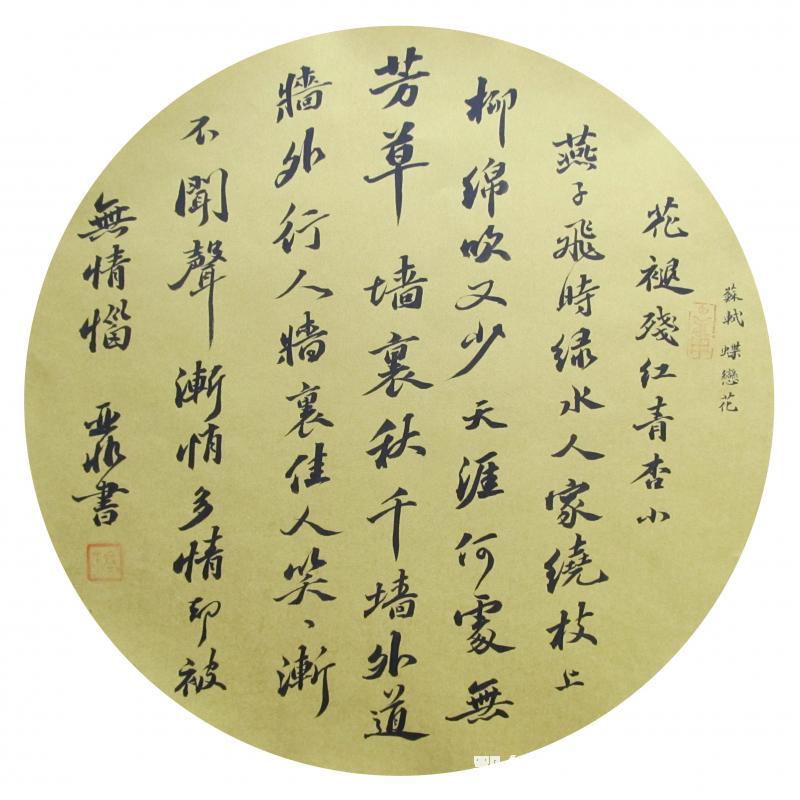 蘇軾 蝶戀花
花褪殘红青杏小
燕子飛時绿水人家繞枝上
柳綿吹又少天涯何處無
芳草 墙裏秋千墙外道
牆外行人牆裏佳人笑、漸
不聞聲漸悄多情却被
無情惱 亚非書